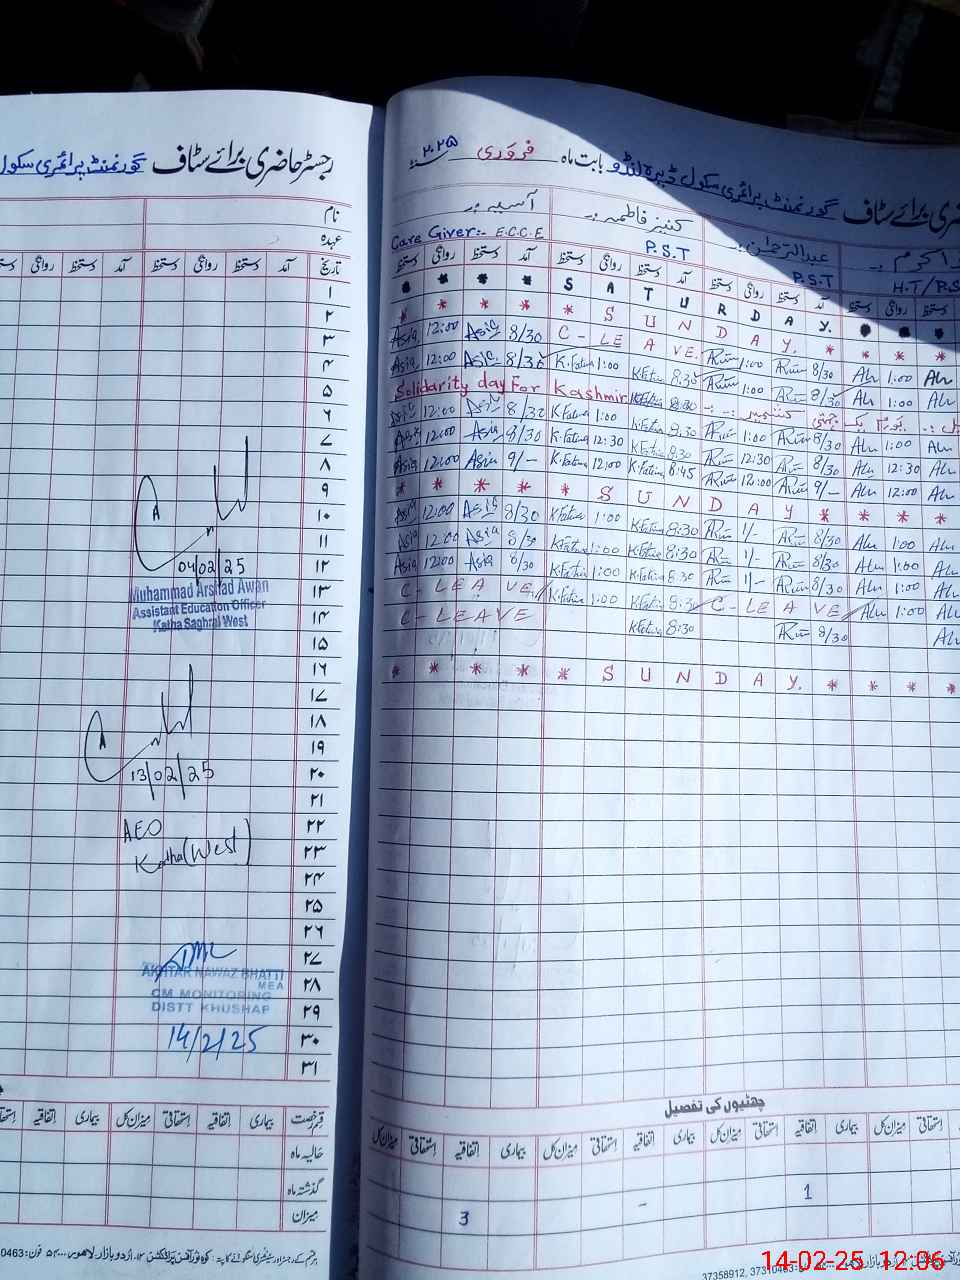 رجسٹر حاضری برائے سٹاف گورنمنٹ پرائمری سکول
نام
عہدہ
تاریخ آمد دستخط روانگی دستخط آمد دستخط روانگی دستخط
۱
۲
۳
۴
۵
۶
۷
۸
۹
۱۰
۱۱
۱۲
۱۳
۱۴
۱۵
۱۶
۱۷
۱۸
۱۹
۲۰
۲۱
۲۲
۲۳
۲۴
۲۵
۲۶
۲۷
۲۸
۲۹
۳۰
۳۱
04/02/25
Muhammad Arshad Awan
Assistant Education Officer
Katha Saghral West
13/02/25
AEO
Katha (West)
AKHTAR NAWAZ BHATTI
MEA
CM MONITORING
DISTT KHUSHAB
14/2/25
قسم رخصت بیماری اتفاقیہ استحقاقی میزان کل بیماری اتفاقیہ
حالیہ ماہ
گذشتہ ماہ
میزان
حاضری برائے سٹاف گورنمنٹ پرائمری سکول ڈیرہ لنڈو بابت ماہ فروری ۲۰۲۵
آسیہ
کنیز فاطمہ
عبدالرحمن
اکرم
Care Giver:- E.C.C.E
P.S.T
P.S.T
H.T/P.S
دستخط روانگی دستخط آمد دستخط روانگی دستخط آمد دستخط روانگی دستخط آمد دستخط روانگی دستخط
S A T U R D A Y.
* * * * * S U N D A Y. * * * *
Asia 12:00 Asia 8/30 C - LEAVE. 1:00 8/30 1:00
Asia 12:00 Asia 8/30 K.Fatima 1:00 K.Fatima 8:30 1:00 8/30 1:00
Solidarity day For Kashmir
Asia 12:00 Asia 8/30 K.Fatima 1:00 K.Fatima 8:30 1:00 8/30 1:00
Asia 12:00 Asia 8/30 K.Fatima 12:30 K.Fatima 8:30 12:30 8/30 12:30
Asia 12:00 Asia 9/- K.Fatima 12:00 K.Fatima 8:45 12:00 9/- 12:00
* * * * * S U N D A Y * * * *
Asia 12:00 Asia 8/30 K.Fatima 1:00 K.Fatima 8:30 1/- 8/30 1:00
Asia 12:00 Asia 8/30 K.Fatima 1:00 K.Fatima 8:30 1/- 8/30 1:00
Asia 12:00 Asia 8/30 K.Fatima 1:00 K.Fatima 8:30 1/- 8/30 1:00
C - LEAVE K.Fatima 1:00 K.Fatima 8:30 C - LEAVE 1:00
C - LEAVE K.Fatima 8:30 8/30
* * * * * S U N D A Y. * * * *
چھٹیوں کی تفصیل
میزان کل استحقاقی اتفاقیہ بیماری میزان کل استحقاقی اتفاقیہ بیماری میزان کل استحقاقی اتفاقیہ بیماری میزان کل استحقاقی
3 - 1
37358912, 37310463
14-02-25 12:06